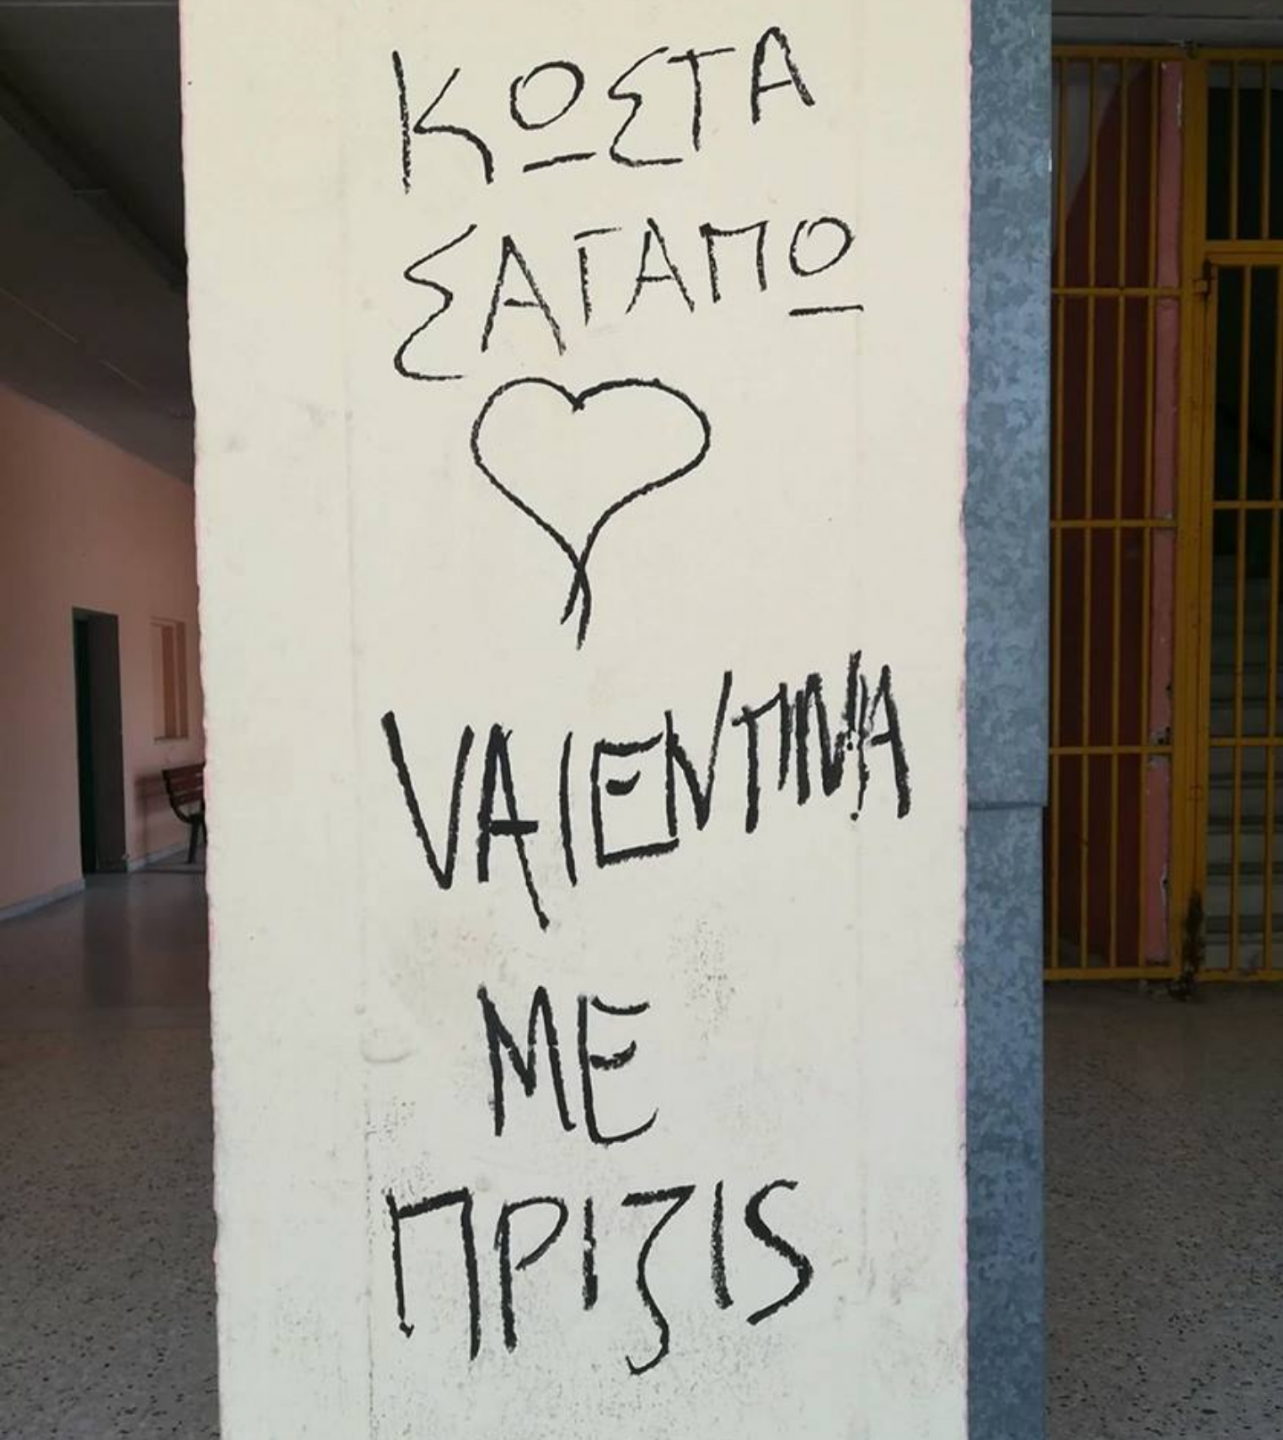 ΚΩΣΤΑ
ΣΑΓΑΠΩ
VALENTINA
ΜΕ
ΠΡΙΖΙS